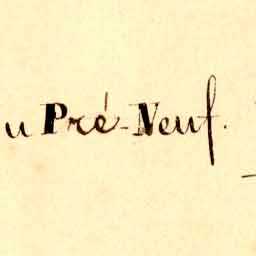 u Pré-Neuf.